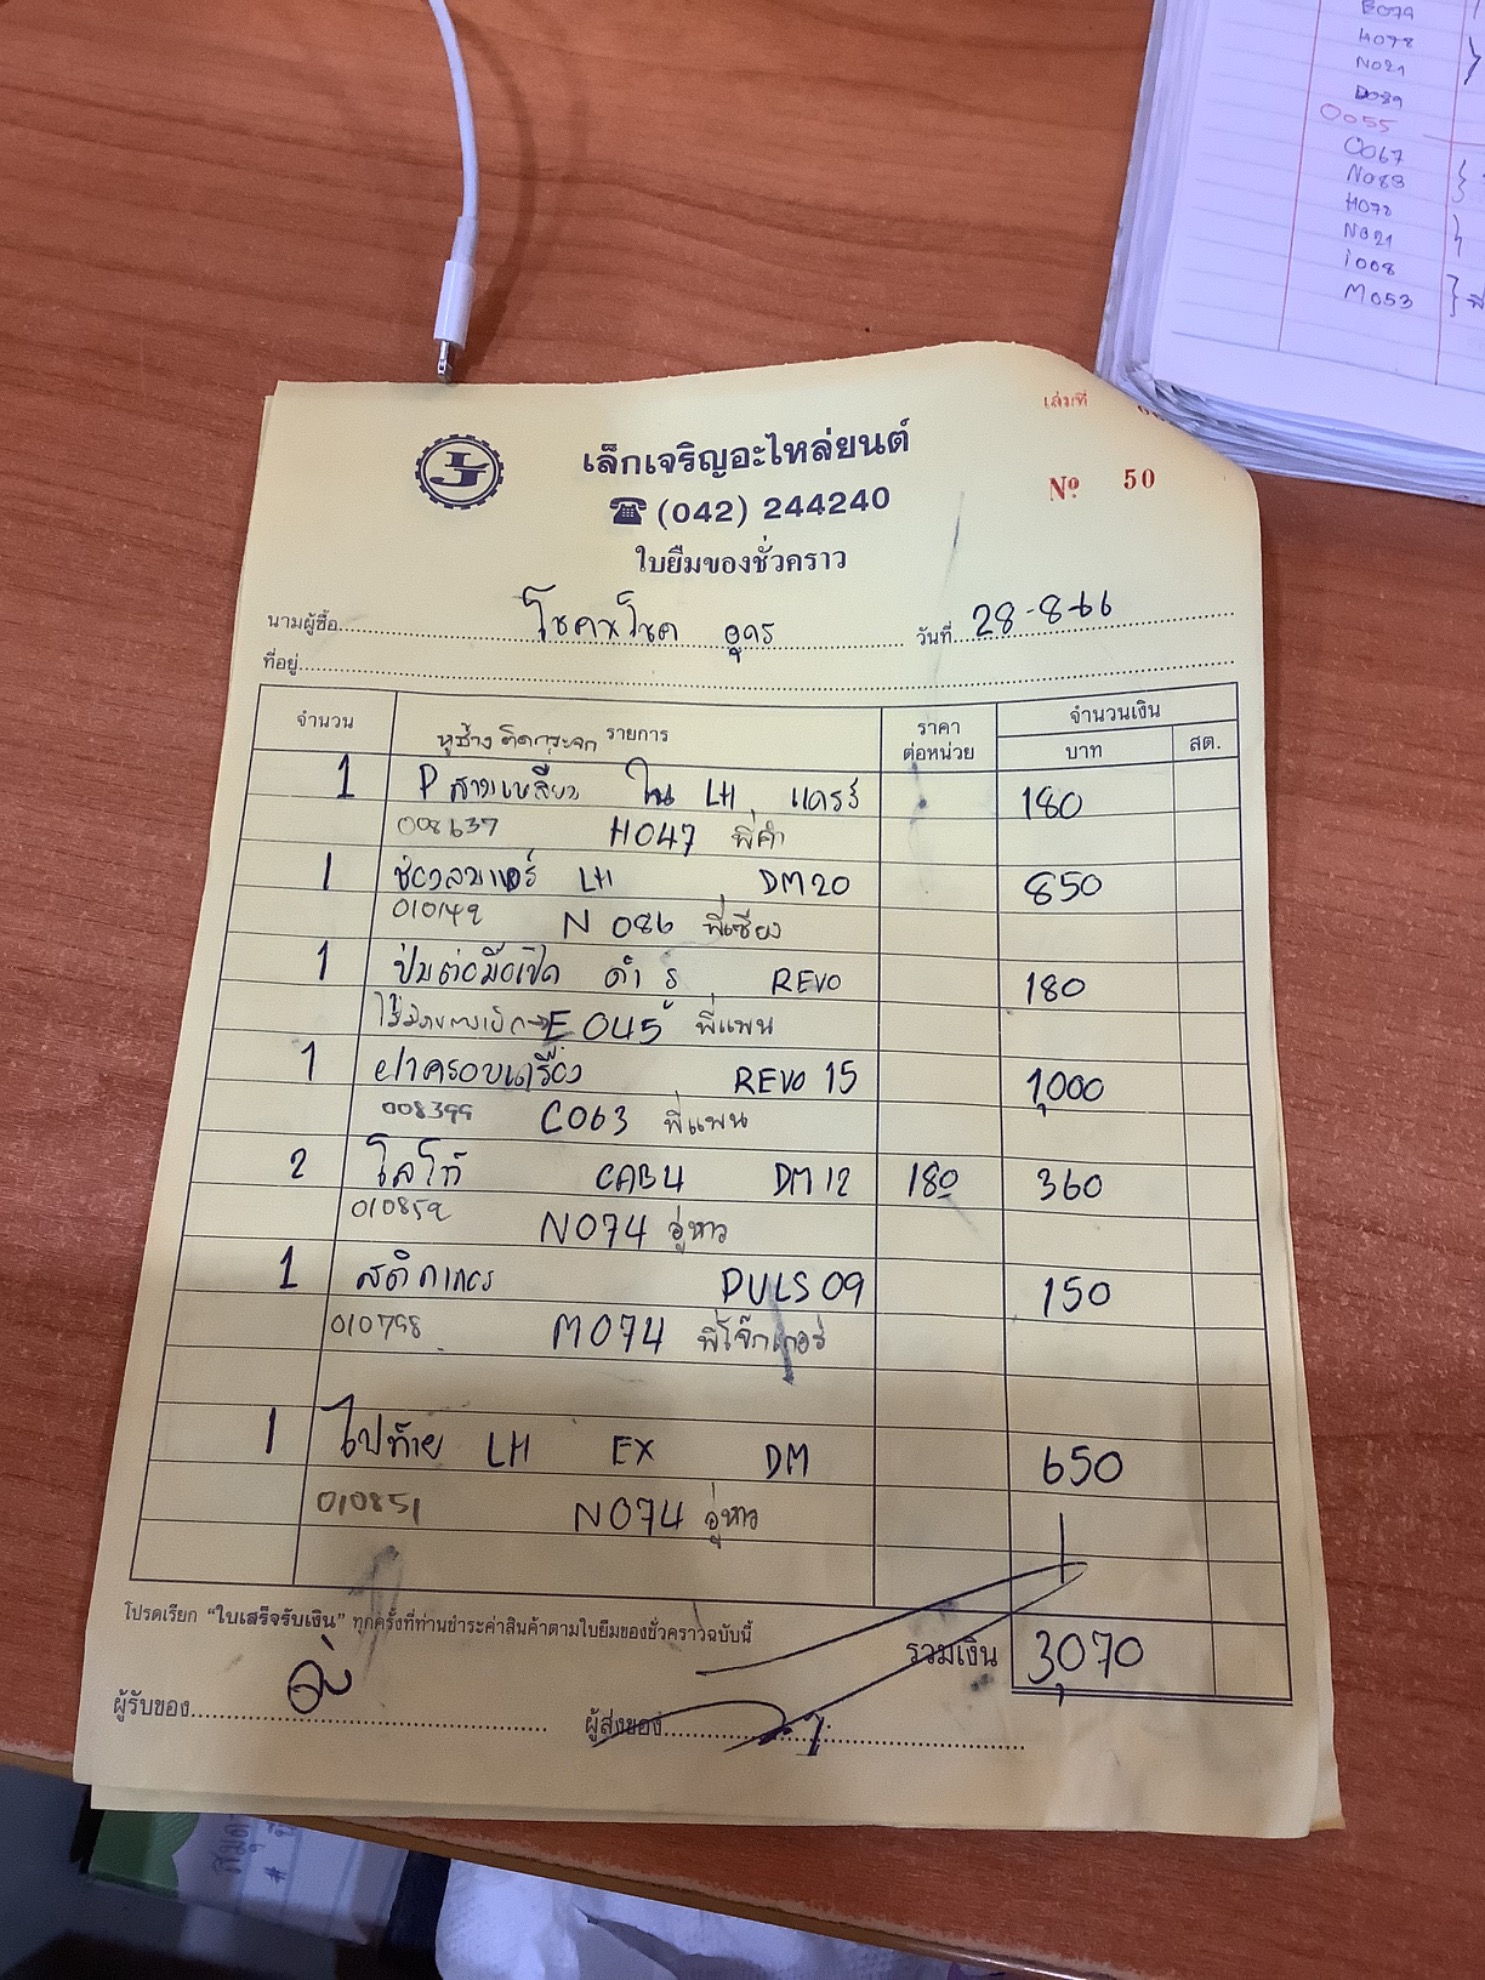 E079
H078
N021
D089
O055
C067
N083
H078
N021
i008
M053
เล่มที่
LJ
เล็กเจริญอะไหล่ยนต์
(042) 244240
Nº 50
ใบยืมของชั่วคราว
นามผู้ซื้อ โชคxโชค อุดร วันที่ 28-8-66
ที่อยู่
จำนวน รายการ ราคา ต่อหน่วย จำนวนเงิน บาท สต.
หูช้าง ติดกระจก
1 P สามเหลี่ยม ใน LH แคร์รี่ 180
008637 H047 พี่คำ
1 ช่องลมแอร์ LH DM20 850
N 086 พี่เซียง
1 ปุ่มต่อมือเปิด ดำ รุ REVO 180
E045 พี่แพน
1 ฝาครอบเครื่อง REVO 15 1,000
008399 C063 พี่แพน
2 โลโก้ CAB4 DM12 180 360
010859 N074 อู่หาว
1 สติกเกอร์ PULS 09 150
010798 M074 พี่โจ๊กเกอร์
1 ไฟท้าย LH EX DM 650
010851 N074 อู่หาว
โปรดเรียก “ใบเสร็จรับเงิน” ทุกครั้งที่ท่านชำระค่าสินค้าตามใบยืมของชั่วคราวฉบับนี้
รวมเงิน 3,070
ผู้รับของ ผู้ส่งของ
สมุด
#